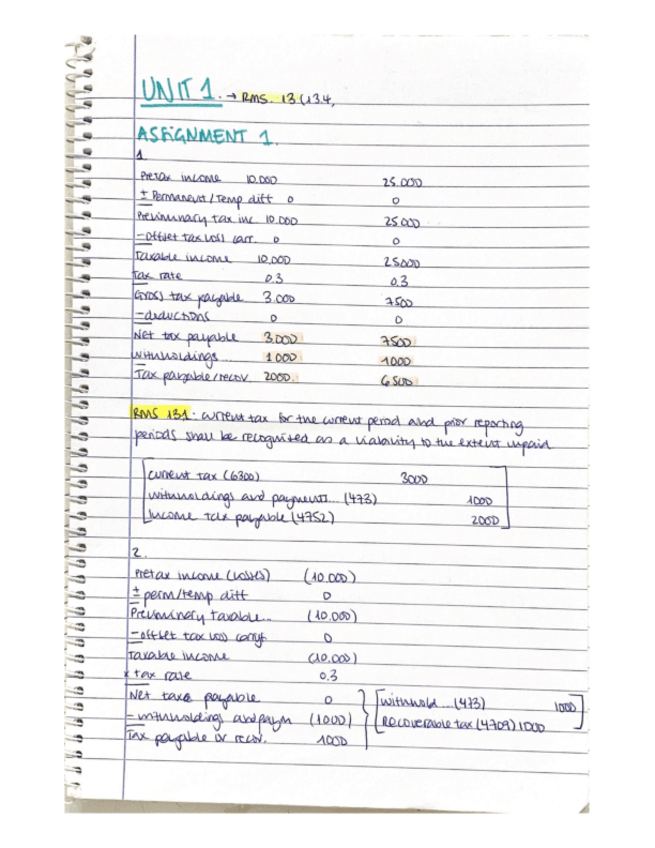 UNIT 1. → RMS. 13 (13.4,
ASSIGNMENT 1.
1
Pretax income 10.000 25.000
± Permanent/Temp diff 0 0
Preliminary tax inc. 10.000 25000
- Offset tax loss carr. 0 0
Taxable income 10.000 25000
Tax rate 0.3 0.3
Gross tax payable 3.000 7500
- deductions 0 0
Net tax payable 3.000 7500
Withholdings... 1000 1000
Tax payable/recov. 2000. 6500
RMS 13.1: current tax for the current period and prior reporting
periods shall be recognized as a liability to the extent unpaid
Current tax (6300) 3000
withholdings and payments... (473) 1000
Income tax payable (4752) 2000
2.
Pretax income (losses) (10.000)
± perm/temp diff 0
Preliminary taxable... (10.000)
- offset tax loss carryf. 0
Taxable income (10.000)
x tax rate 0.3
Net taxe payable 0
- withholdings and paym (1000)
Tax payable or recov. 1000
withhold... (473) 1000
Recoverable tax (4709) 1000